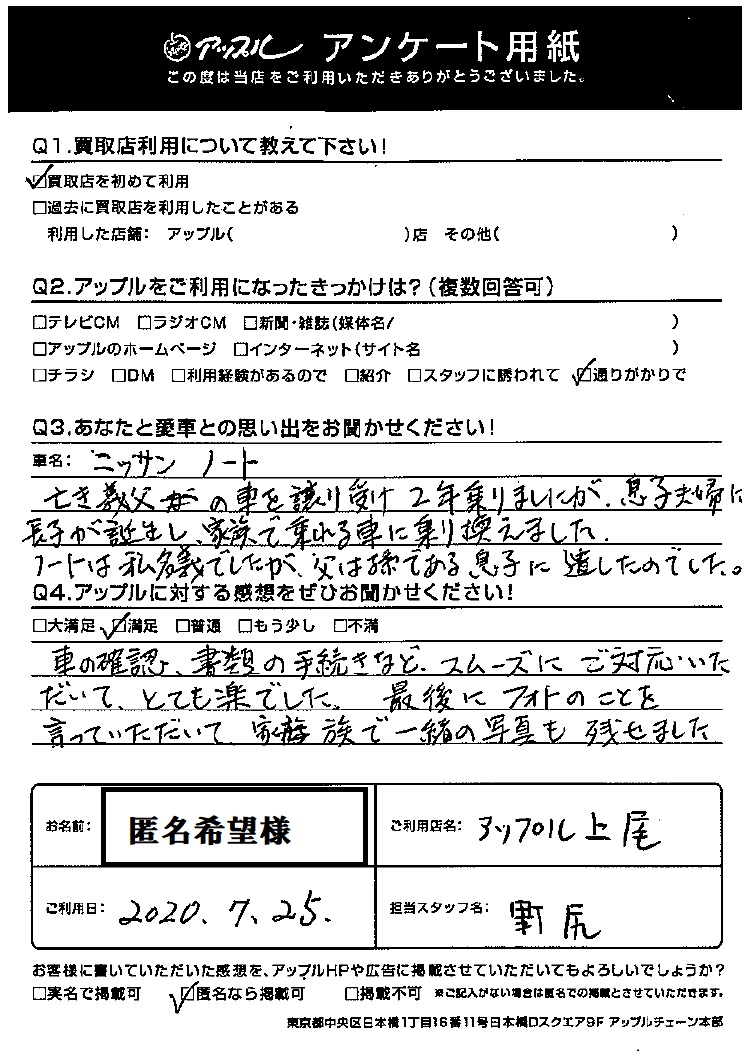 アップル アンケート用紙
この度は当店をご利用いただきありがとうございました。
Q1.買取店利用について教えて下さい!
☑買取店を初めて利用
□過去に買取店を利用したことがある
利用した店舗: アップル( )店 その他( )
Q2.アップルをご利用になったきっかけは?(複数回答可)
□テレビCM □ラジオCM □新聞・雑誌(媒体名/ )
□アップルのホームページ □インターネット(サイト名 )
□チラシ □DM □利用経験があるので □紹介 □スタッフに誘われて ☑通りがかりで
Q3.あなたと愛車との思い出をお聞かせください!
車名: ニッサン ノート
亡き義父の車を譲り受け2年乗りましたが、息子夫婦に
長子が誕生し、家族で乗れる車に乗り換えました。
ノートは私名義でしたが、父は孫である息子に遺したのでした。
Q4.アップルに対する感想をぜひお聞かせください!
□大満足 ☑満足 □普通 □もう少し □不満
車の確認、書類の手続きなど、スムーズにご対応いた
だいて、とても楽でした。最後にフォトのことを
言っていただいて、家族で一緒の写真も残せました
お名前: 匿名希望様
ご利用店名: アップル上尾
ご利用日: 2020.7.25.
担当スタッフ名: 野尻
お客様に書いていただいた感想を、アップルHPや広告に掲載させていただいてもよろしいでしょうか?
□実名で掲載可 ☑匿名なら掲載可 □掲載不可 ※ご記入がない場合は匿名での掲載とさせていただきます。
東京都中央区日本橋1丁目16番11号日本橋Dスクエア9F アップルチェーン本部